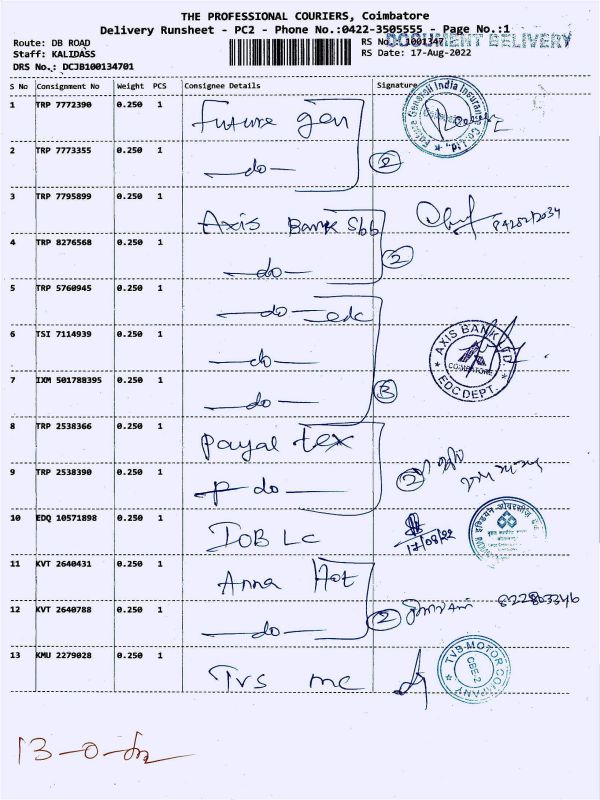 THE PROFESSIONAL COURIERS, Coimbatore
Delivery Runsheet - PC2 - Phone No.:0422-3505555 - Page No.:1
Route: DB ROAD
RS No. : 1001347
DOCUMENT DELIVERY
Staff: KALIDASS
RS Date: 17-Aug-2022
DRS No.: DCJB100134701
S No Consignment No Weight PCS Consignee Details Signature
1 TRP 7772390 0.250 1 Future gen
2 TRP 7773355 0.250 1 —do— 2
3 TRP 7795899 0.250 1 Axis Bank Sbb
4 TRP 8276568 0.250 1 —do— 2
5 TRP 5760945 0.250 1 —do— edc
6 TSI 7114939 0.250 1 —do—
AXIS BANK LTD
COIMBATORE
EDC DEPT.
7 IXM 501788395 0.250 1 —do— 3
8 TRP 2538366 0.250 1 payal tex
9 TRP 2538390 0.250 1 do — 2
10 EDQ 10571898 0.250 1 IOB LC 17/08/22
11 KVT 2640431 0.250 1 Anna Hot
12 KVT 2640788 0.250 1 —do— 2
13 KMU 2279028 0.250 1 TVS mc
TVS MOTOR COMPANY
13-0-